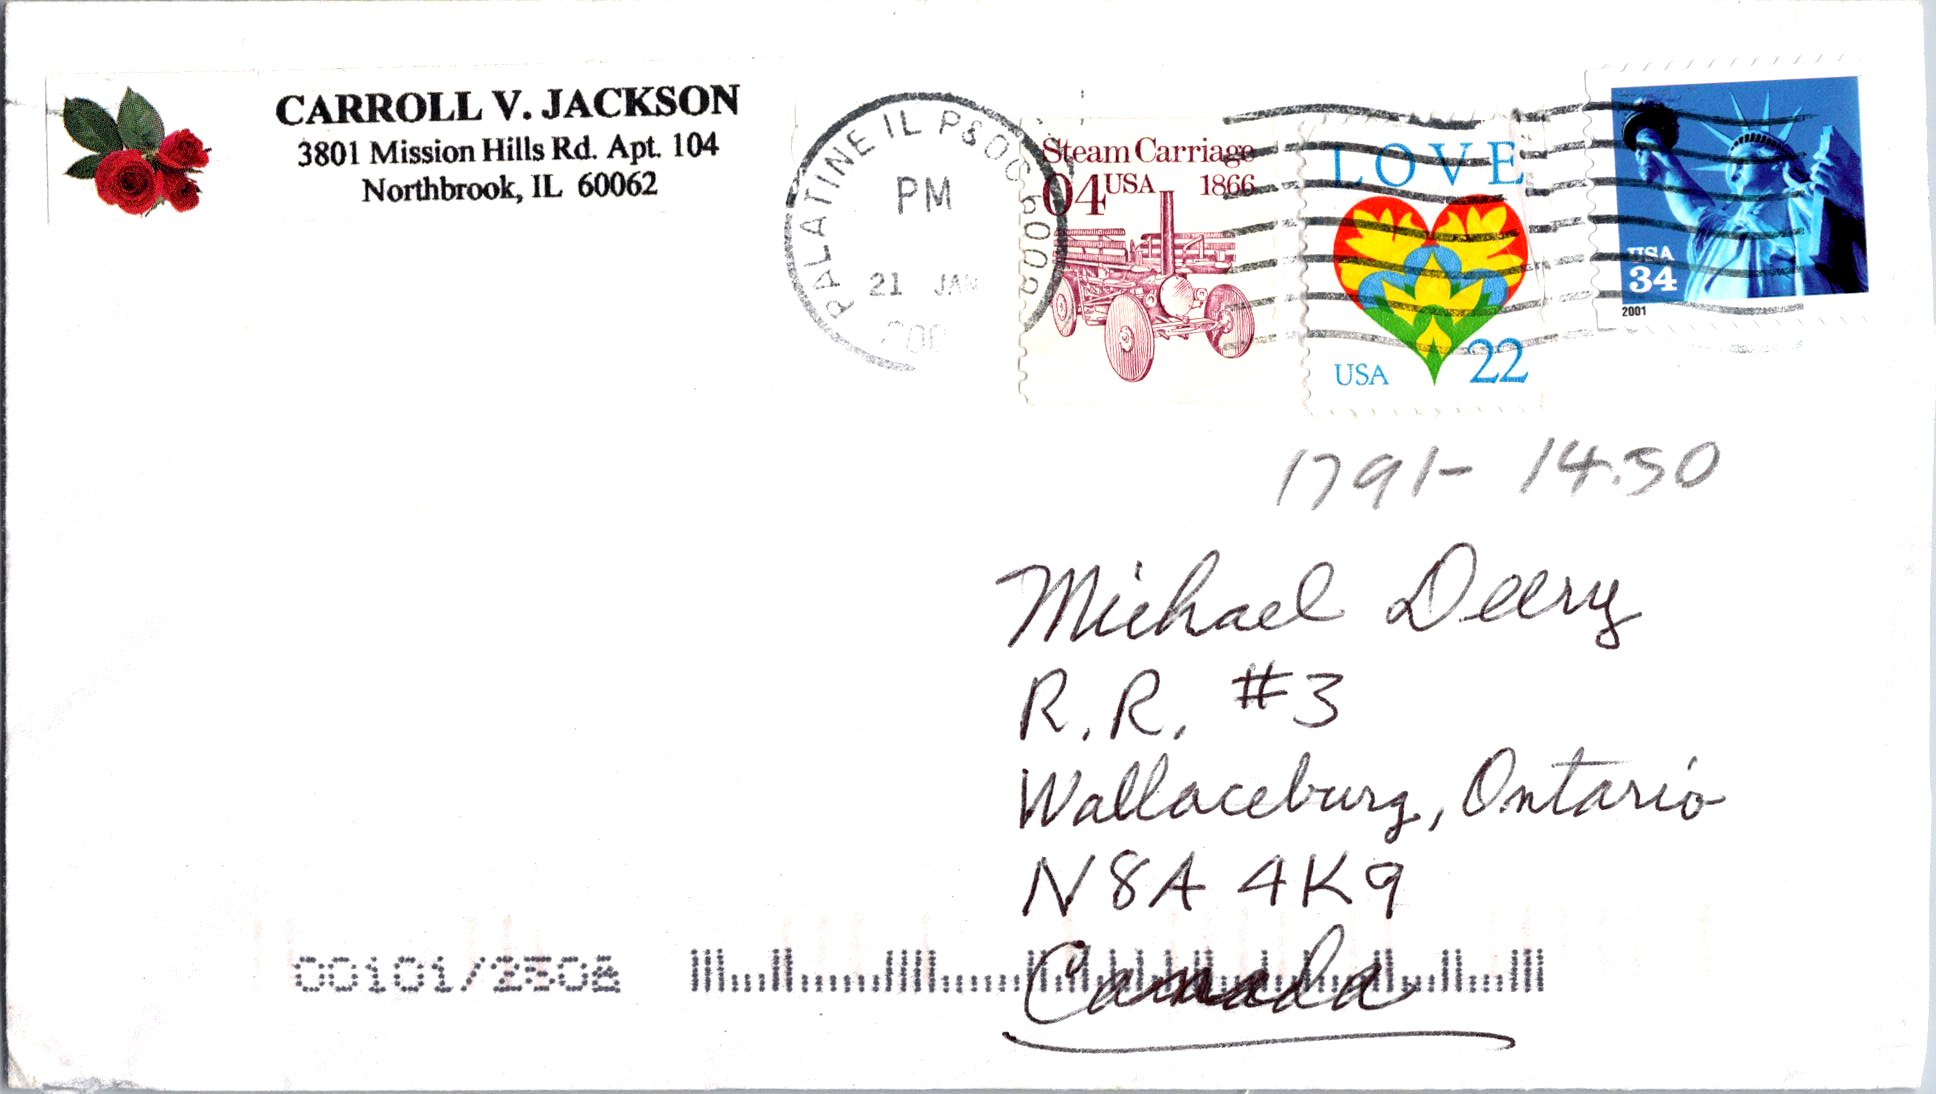 CARROLL V. JACKSON
3801 Mission Hills Rd. Apt. 104
Northbrook, IL 60062
PALATINE IL P&DC 6009
PM
21 JAN
200
Steam Carriage
04 USA 1866
LOVE
USA 22
USA
34
2001
1791- 14.50
Michael Deery
R.R. #3
Wallaceburg, Ontario
N8A 4K9
Canada
00101/2308